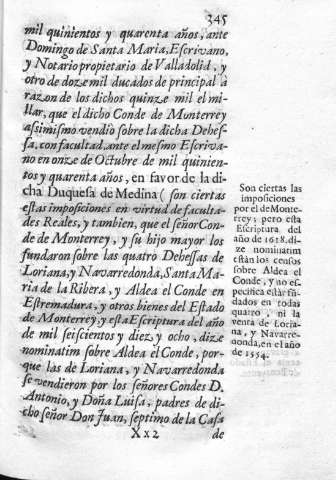 345
mil quinientos y quarenta años, ante
Domingo de Santa Maria, Escrivano,
y Notario propietario de Valladolid, y
otro de doze mil ducados de principal à
razon de los dichos quinze mil el mi-
llar, que el dicho Conde de Monterrey
assimismo vendiò sobre la dicha Dehes-
sa, con facultad, ante el mesmo Escriva-
no en onze de Octubre de mil quinien-
tos y quarenta años, en favor de la di-
cha Duquesa de Medina (son ciertas
estas imposiciones en virtud de faculta-
des Reales, y tambien, que el señor Con-
de de Monterrey, y su hijo mayor los
fundaron sobre las quatro Dehessas de
Loriana, y Navarredonda, Santa Ma-
ria de la Ribera, y Aldea el Conde en
Estremadura, y otros bienes del Estado
de Monterrey, y esta Escriptura del año
de mil seiscientos y diez y ocho, dize
nominatim sobre Aldea el Conde, por-
que las de Loriana, y Navarredonda
se vendieron por los señores Condes D.
Antonio, y Doña Luisa, padres de di-
cho señor Don Juan, septimo de la Casa
Xx2 de
Son ciertas las
imposiciones
por el de Monte-
rrey; pero esta
Escriptura del
año de 1618. di-
ze nominatim
estàn los censos
sobre Aldea el
Conde, y no es-
pecifica estàr fũ-
dados en todas
quatro, ni la
venta de Loria-
na, y Navarre-
donda, en el año
de 1554.